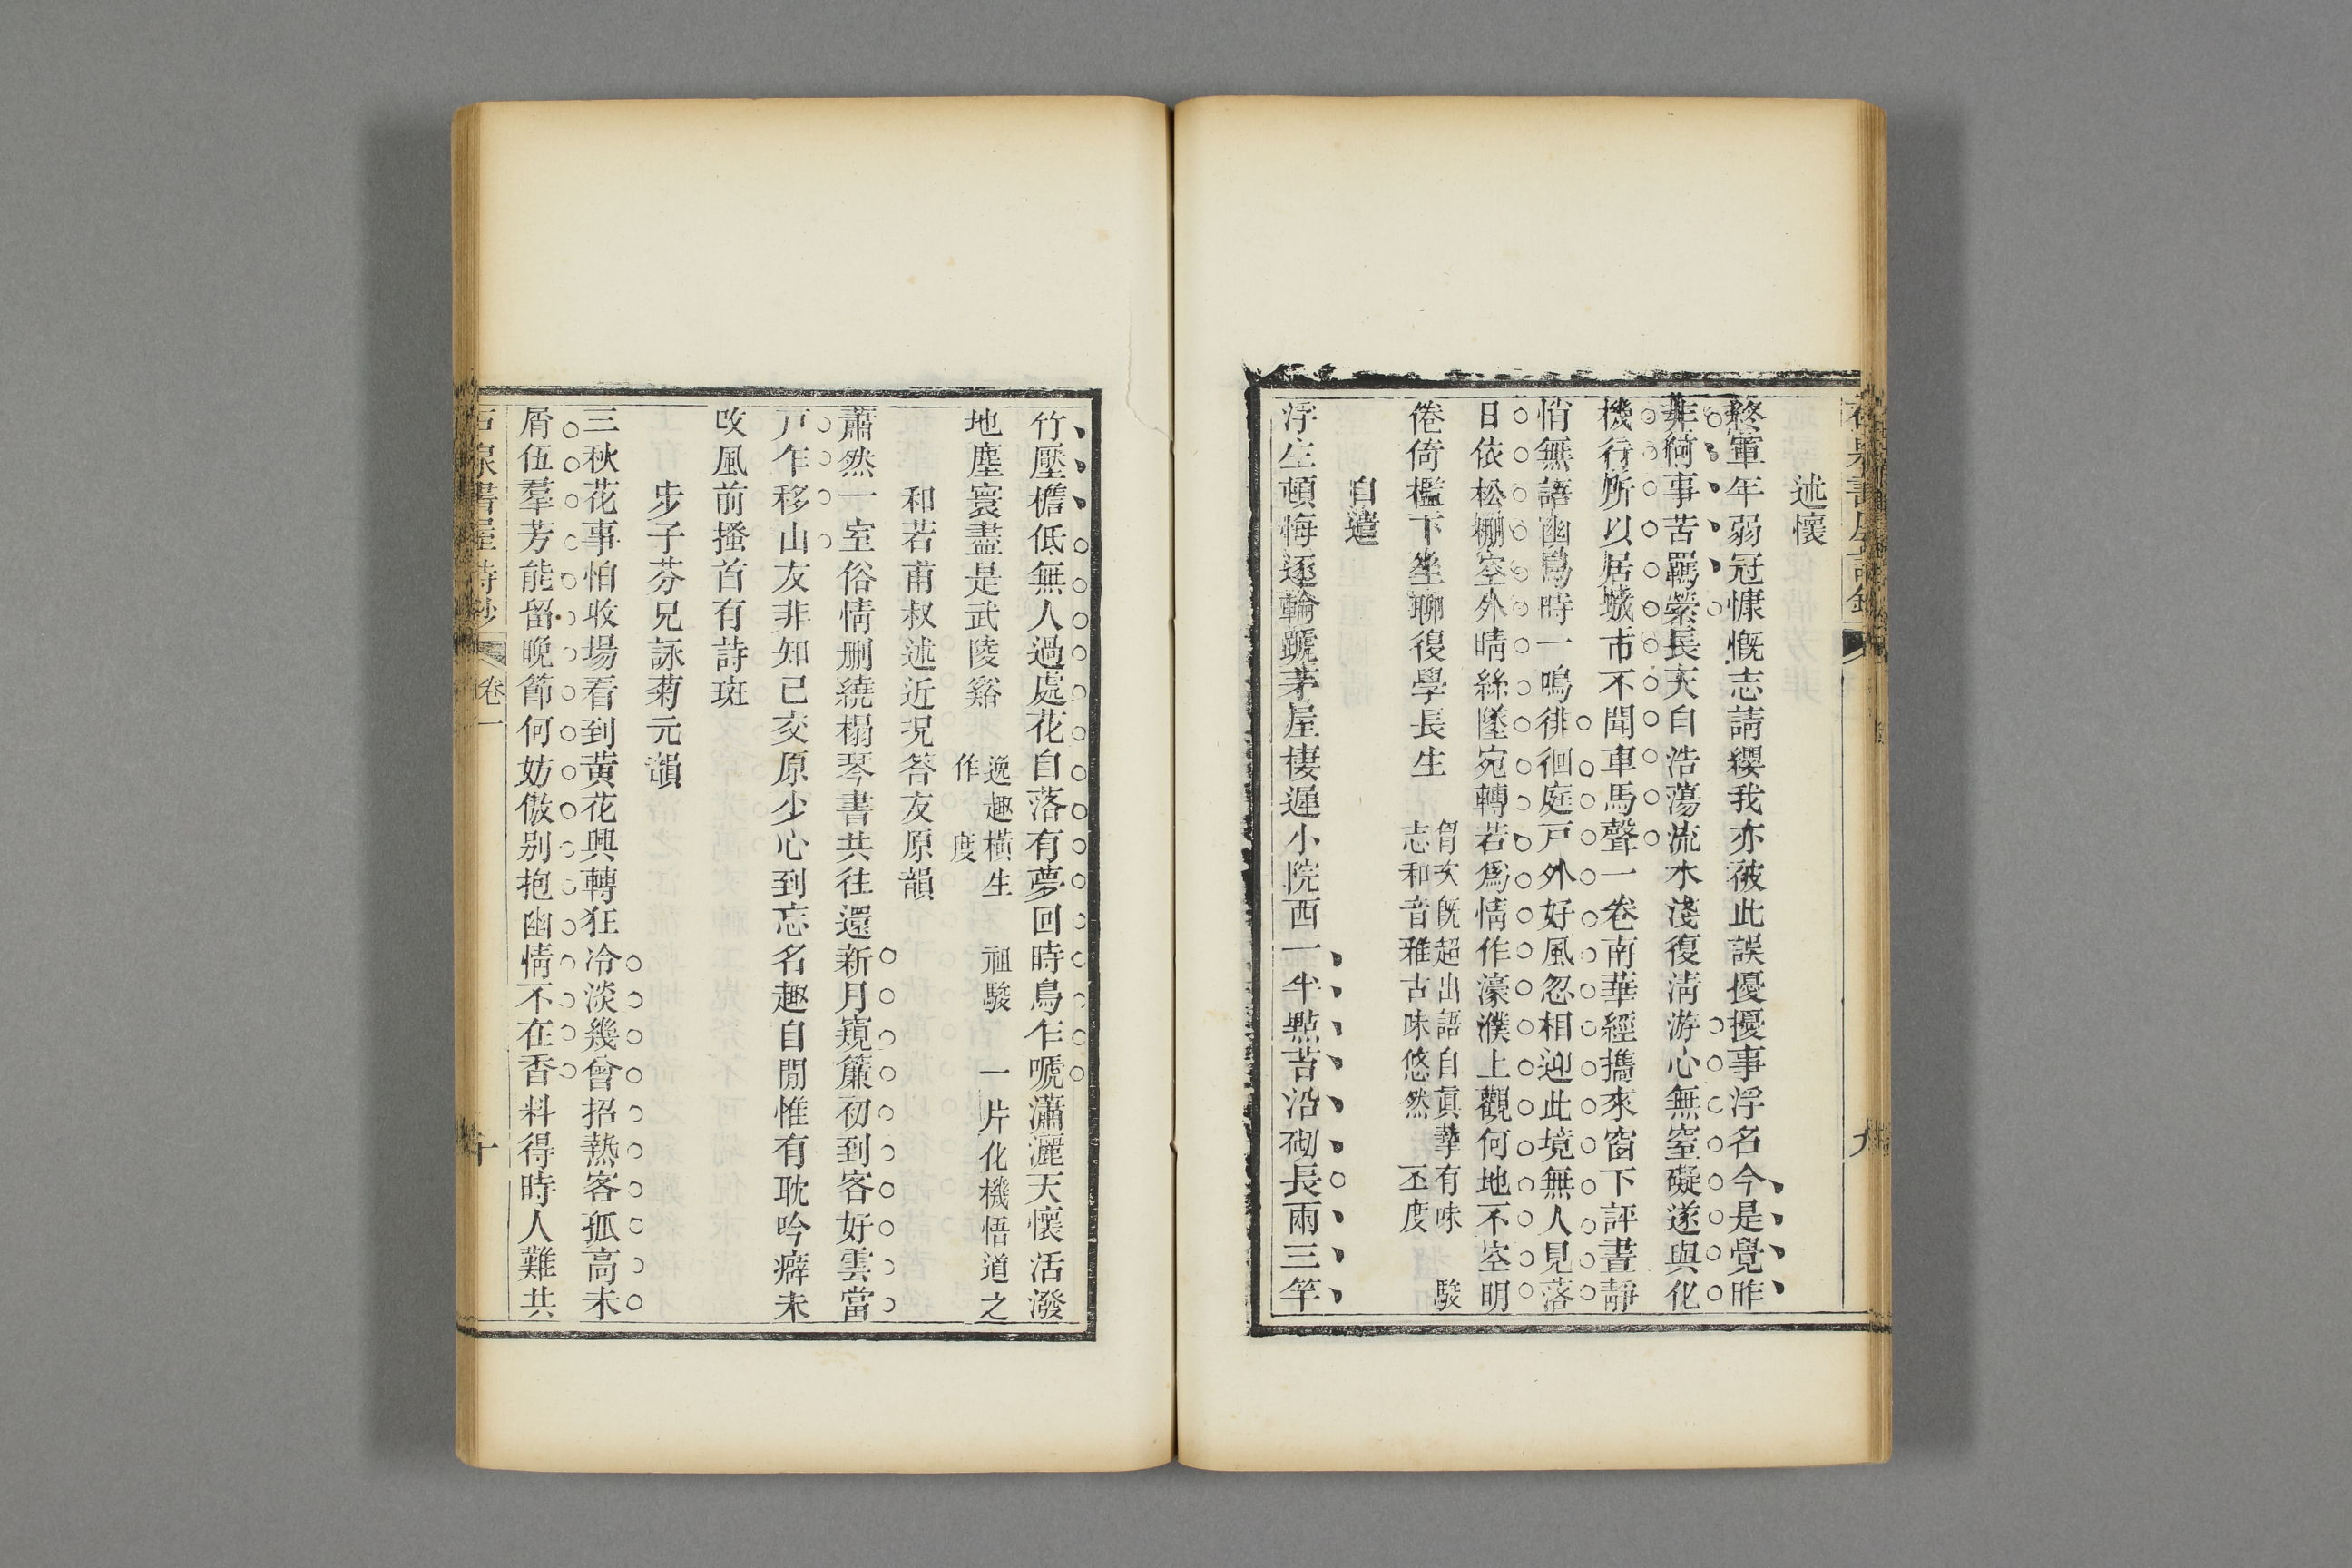 述懷
終軍年弱冠慷慨志請纓我亦被此誤擾擾事浮名今是覺昨
非何事苦羈縈長天自浩蕩流水淺復淸游心無窒礙遂與化
機行所以居城市不聞車馬聲一卷南華經攜來窗下評晝靜
悄無語幽鳥時一鳴徘徊庭戸外好風忽相迎此境無人見落
日依松棚空外晴絲墜宛轉若爲情作濠濮上觀何地不空明
倦倚檻下坐聊復學長生
胷次旣超出語自眞摯有味 駿
志和音雅古味悠然 丕度
自遣
浮生頓悔逐輪蹏茅屋棲遲小院西一半點苔沿砌長兩三竿
竹壓檐低無人過處花自落有夢回時鳥乍嗁瀟灑天懷活潑
地塵寰盡是武陵谿
逸趣橫生 祖駿 一片化機悟道之
作 度
和若甫叔述近況答友原韻
蕭然一室俗情删繞榻琴書共往還新月窺簾初到客好雲當
戸乍移山友非知己交原少心到忘名趣自閒惟有耽吟癖未
改風前搔首有詩斑
步子芬兄詠菊元韻
三秋花事怕收場看到黃花興轉狂冷淡幾曾招熱客孤高未
屑伍羣芳能留晚節何妨傲别抱幽情不在香料得時人難共
石泉書屋詩鈔 卷一 十